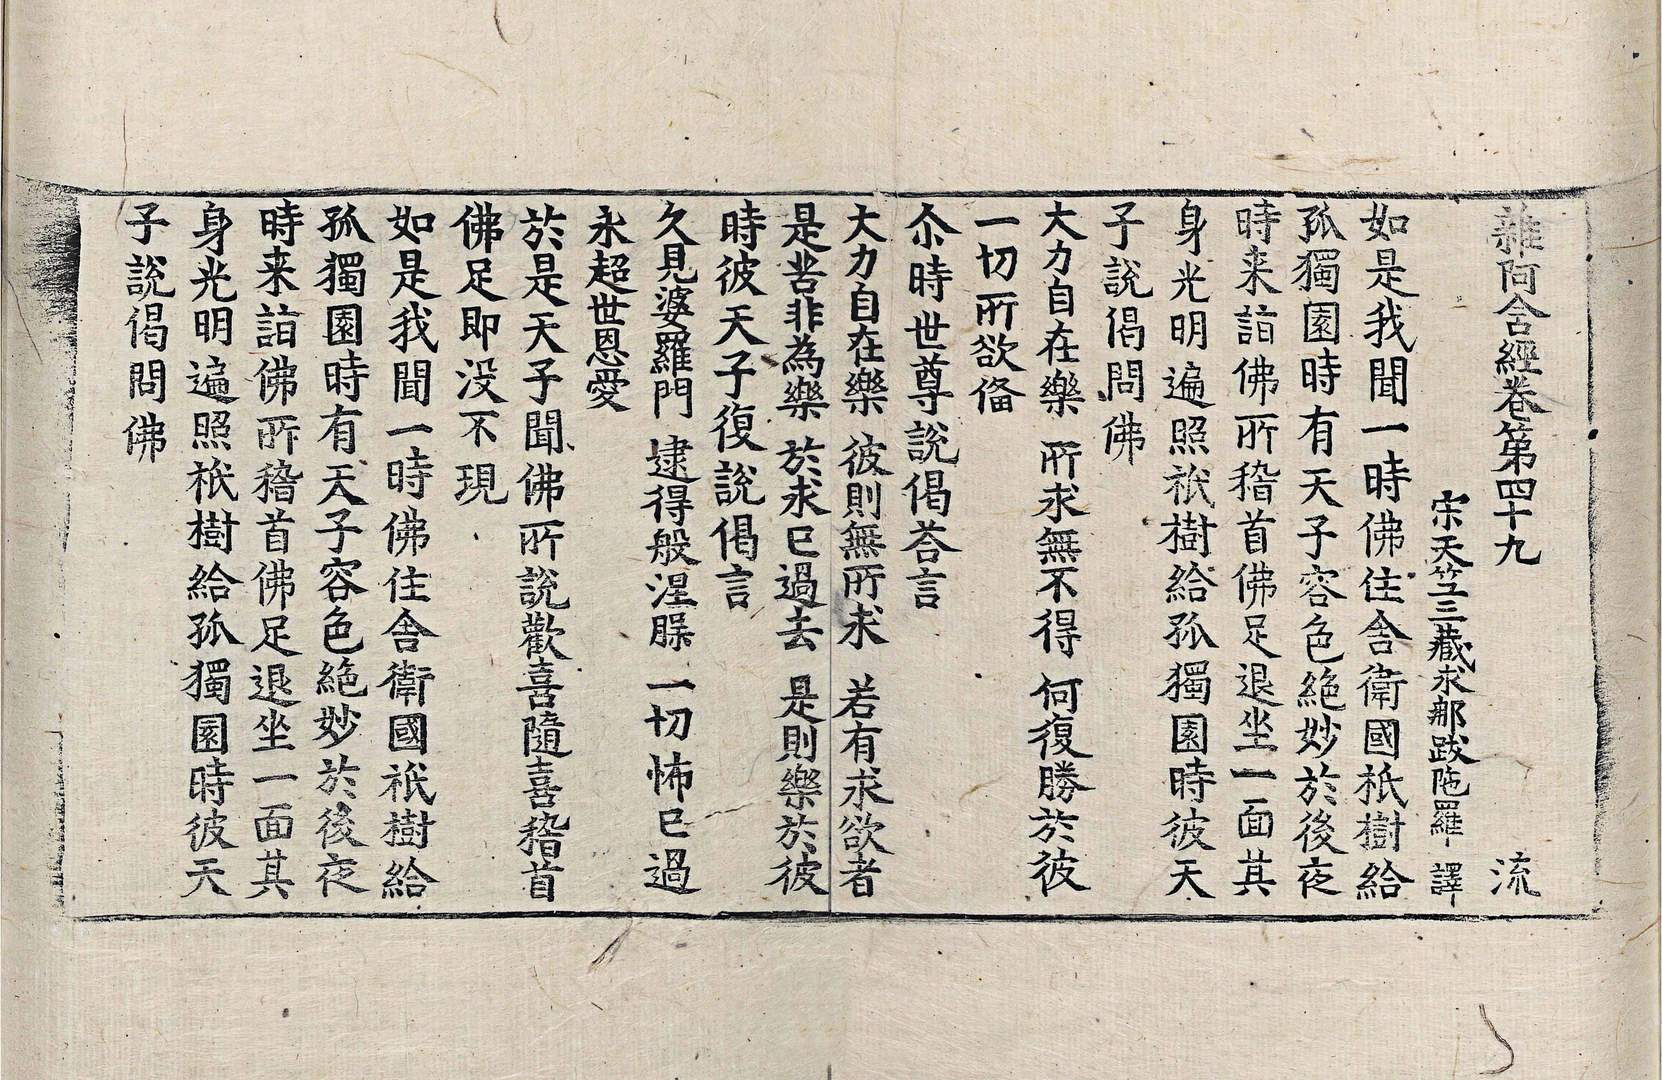 雜阿含經卷第四十九 流
宋天竺三藏求那跋陁羅 譯
如是我聞一時佛住舍衛國祇樹給
孤獨園時有天子容色絶妙於後夜
時来詣佛所稽首佛足退坐一面其
身光明遍照祇樹給孤獨園時彼天
子說偈問佛
大力自在樂 所求無不得 何復勝於彼
一切所欲俻
尒時世尊說偈荅言
大力自在樂 彼則無所求 若有求欲者
是苦非為樂 於求已過去 是則樂於彼
時彼天子復說偈言
久見婆羅門 逮得般涅槃 一切怖已過
永超世恩愛
於是天子聞佛所說歡喜隨喜稽首
佛足即没不現
如是我聞一時佛住舍衛國祇樹給
孤獨園時有天子容色絶妙於後夜
時来詣佛所稽首佛足退坐一面其
身光明遍照祇樹給孤獨園時彼天
子說偈問佛